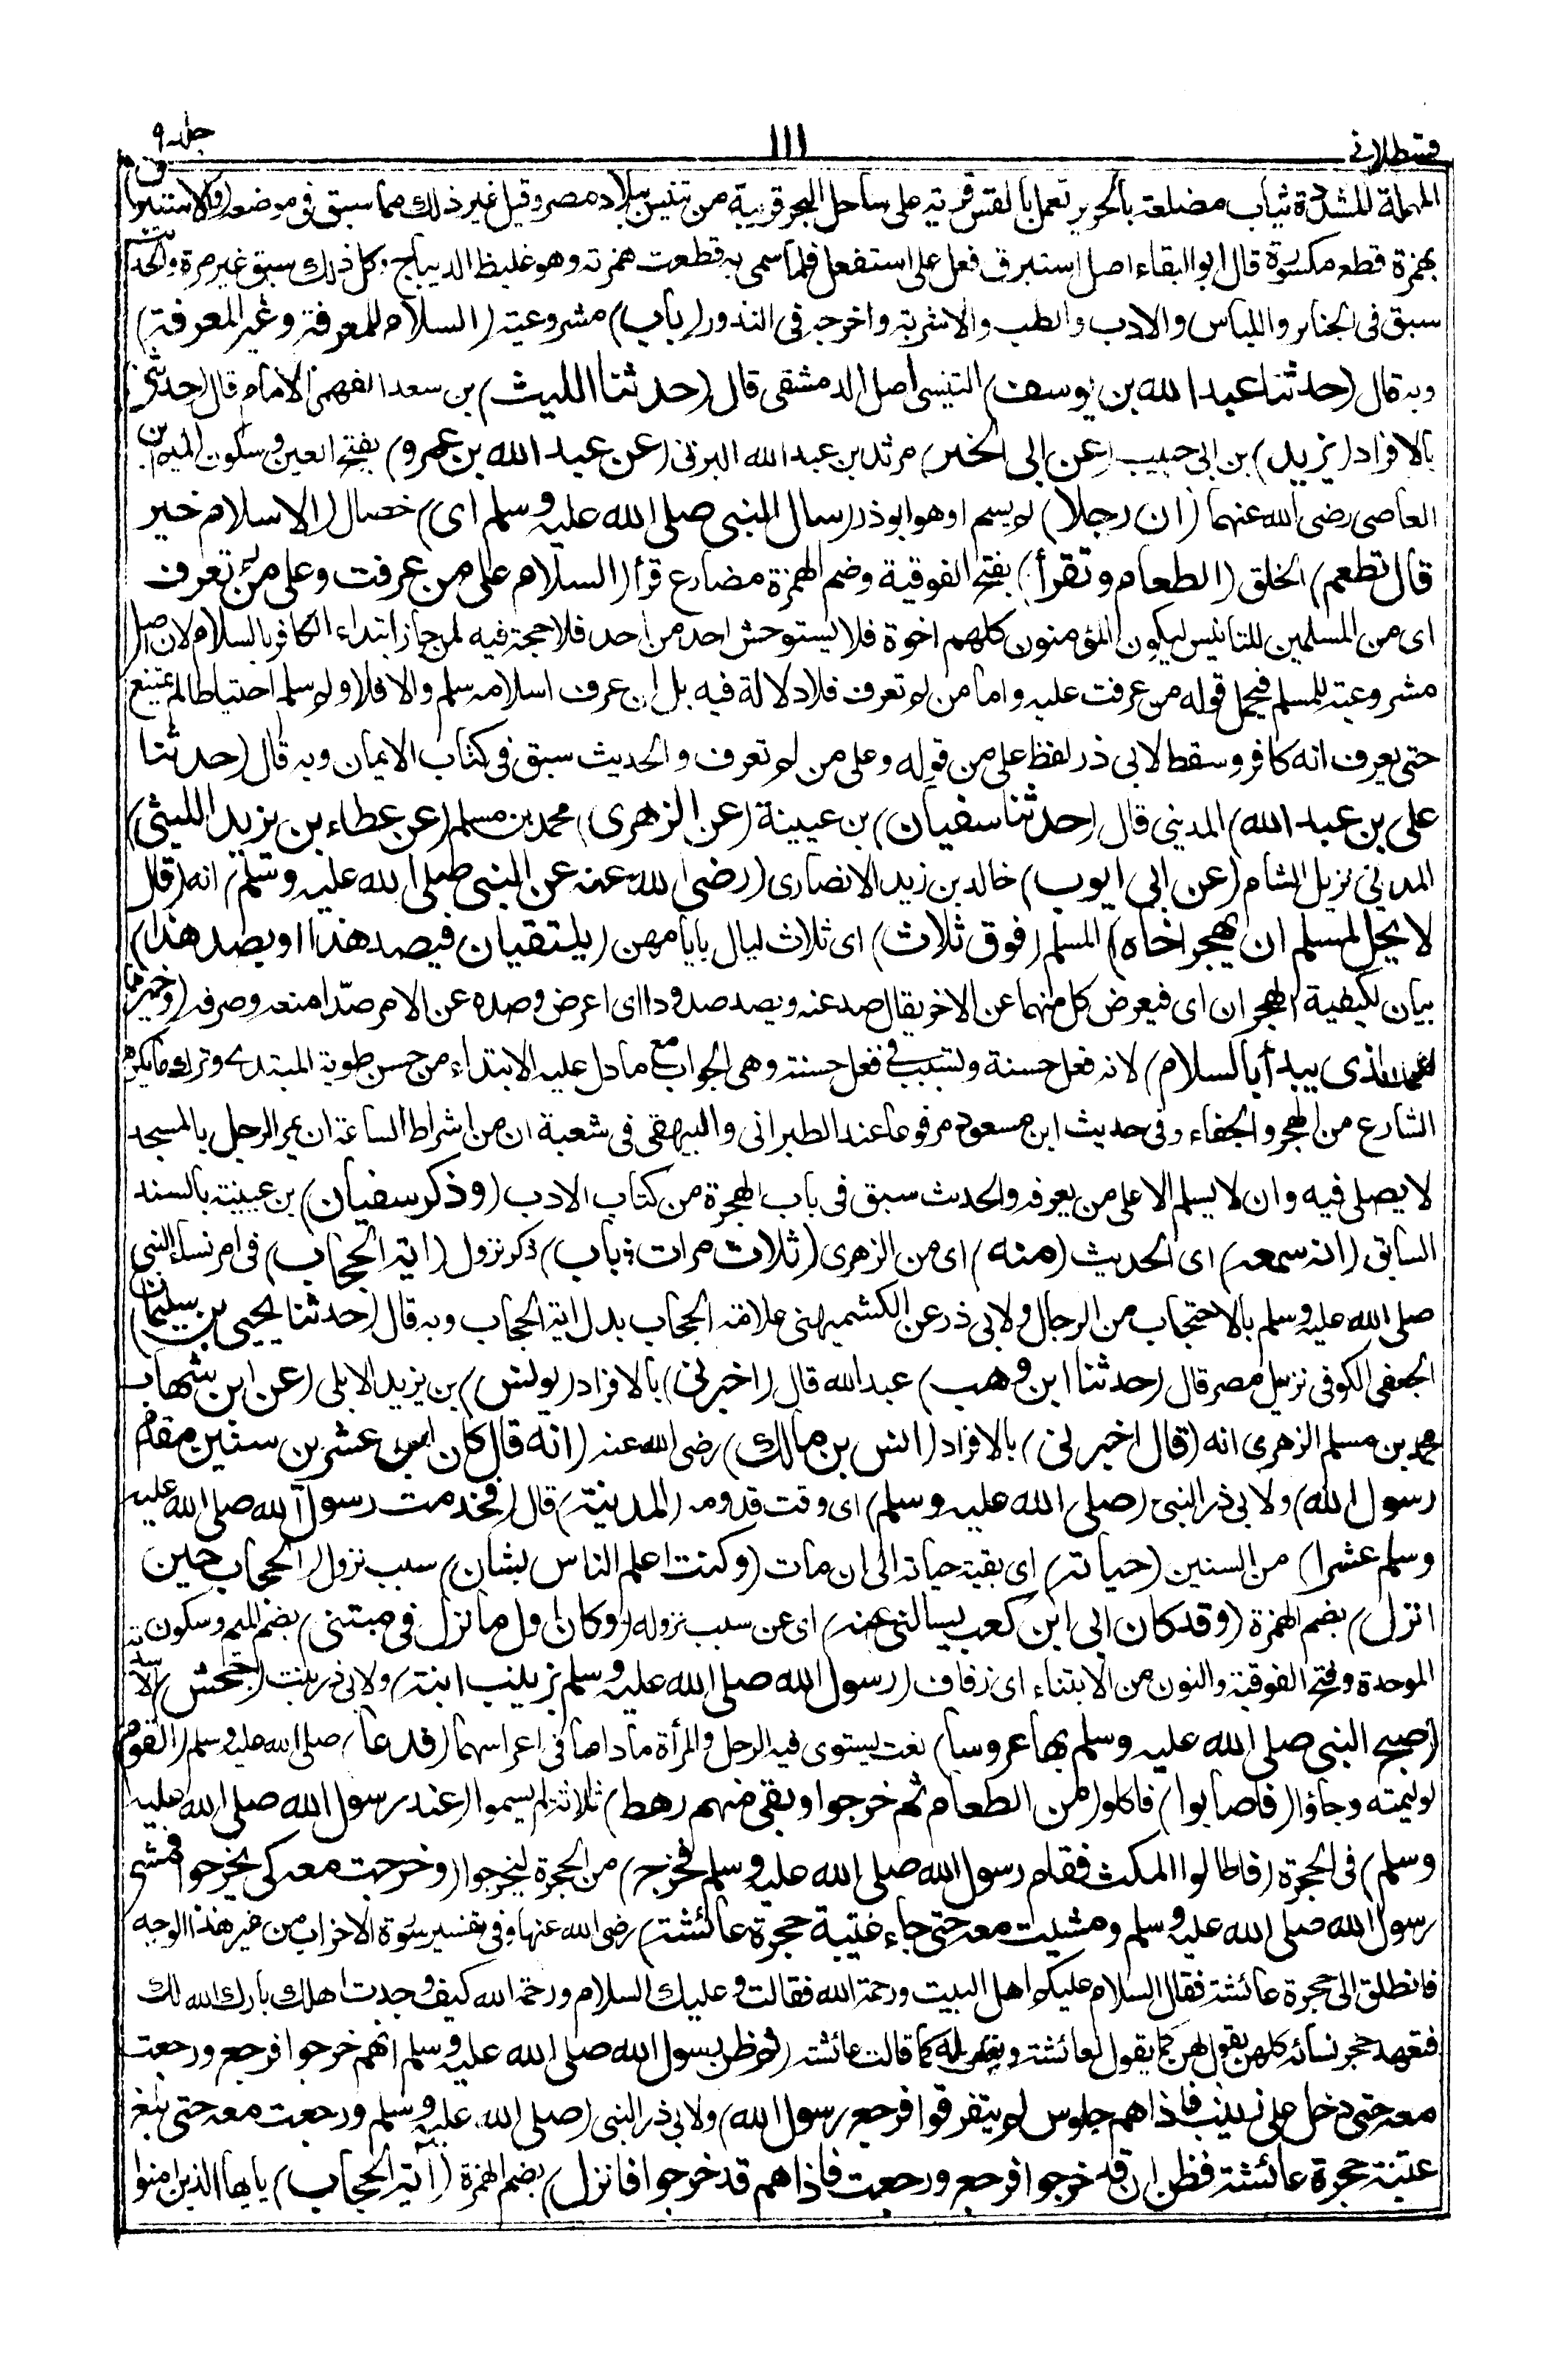 قسطلانی
١١١
جلد ٩
المهملة المشددة ثياب مضلعة بالحرير تعمل بالقس قرية على ساحل البحر قريبة من تنيس ببلاد مصر وقيل غير ذلك مما سبق فى موضعه (والاستبرق)
بهمزة قطع مكسورة قال ابو البقاء اصل استبرق فعل على استفعل فلما سمى به قطعت همزته وهو غليظ الديباج وكل ذلك سبق غير مرة والحديث
سبق فى الجنائز واللباس والادب والطب والاشربة واخرجه فى النذور (باب) مشروعية (السلام للمعرفة وغير المعرفة)
وبه قال (حدثنا عبد الله بن يوسف) التنيسى اصل الدمشقى قال (حدثنا الليث) بن سعد الفهمى الامام قال (حدثنى)
بالافراد (يزيد) بن ابى حبيب (عن ابى الخير) مرثد بن عبد الله اليزنى (عن عبد الله بن عمرو) بفتح العين وسكون الميم ابن
العاصى رضى الله عنهما (ان رجلا) لم يسم او هو ابو ذر (سال النبى صلى الله عليه وسلم اى) خصال (الاسلام خير
قال تطعم) الخلق (الطعام وتقرأ) بفتح الفوقية وضم الهمزة مضارع قرأ (السلام على من عرفت وعلى من لم تعرف
اى من المسلمين للتانيس ليكون المؤمنون كلهم اخوة فلا يستوحش احد من احد فلا حجة فيه لمن جاز ابتداء الكافر بالسلام لان اصل
مشروعيته للمسلم فيحمل قوله من عرفت عليه واما من لم تعرف فلا دلالة فيه بل ان عرف اسلامه سلم والا فلا ولو سلم احتياطا لم يمتنع
حتى يعرف انه كافر وسقط لابى ذر لفظ على من قوله وعلى من لم تعرف والحديث سبق فى كتاب الايمان وبه قال (حدثنا
على بن عبد الله) المدينى قال (حدثنا سفيان) بن عيينة (عن الزهرى) محمد بن مسلم (عن عطاء بن يزيد الليثى)
المدنى نزيل الشام (عن ابى ايوب) خالد بن زيد الانصارى (رضى الله عنه عن النبى صلى الله عليه وسلم) انه (قال
لا يحل لمسلم ان يهجر اخاه) المسلم (فوق ثلاث) اى ثلاث ليال بايامهن (يلتقيان فيصد هذا اويصد هذا)
بيان لكيفية الهجران اى فيعرض كل منهما عن الاخر يقال صد عنه ويصد صدودا اى اعرض وصده عن الامر صدّا منعه وصرفه (وخيرهما
الذى يبدأ بالسلام) لانه فعل حسنة وتسبب فى فعل حسنة وهى الجواب مع ما دل عليه الابتداء من حسن طوية المبتدى وترك ما يكرهه
الشارع من الهجر والجفاء وفى حديث ابن مسعود مرفوعا عند الطبرانى والبيهقى فى شعبه ان من اشراط الساعة ان يمر الرجل بالمسجد
لا يصلى فيه وان لا يسلم الا على من يعرفه والحديث سبق فى باب الهجرة من كتاب الادب (وذكر سفيان) بن عيينة بالسند
السابق (انه سمعه) اى الحديث (منه) اى من الزهرى (ثلاث مرات: باب) ذكر نزول (اية الحجاب) فى امر نساء النبى
صلى الله عليه وسلم بالاحتجاب من الرجال ولابى ذر عن الكشميهنى علامة الحجاب بدل اية الحجاب وبه قال (حدثنا يحيى بن سليمان)
الجعفى الكوفى نزيل مصر قال (حدثنا ابن وهب) عبد الله قال (اخبرنى) بالافراد (يونس) بن يزيد الايلى (عن ابن شهاب
محمد بن مسلم الزهرى انه (قال اخبرنى) بالافراد (انس بن مالك) رضى الله عنه (انه قال كان ابن عشر سنين مقدم
رسول الله) ولابى ذر النبى (صلى الله عليه وسلم) اى وقت قدومه (المدينة) قال (فخدمت رسول الله صلى الله عليه
وسلم عشرا) من السنين (حياته) اى بقية حياته الى ان مات (وكنت اعلم الناس بشان) سبب نزول (الحجاب حين
انزل) بضم الهمزة (وقد كان ابى ابن كعب يسالنى عنه) اى عن سبب نزوله (وكان اول ما نزل فى مبتنى) بضم الميم وسكون
الموحدة وفتح الفوقية والنون من الابتناء اى زفاف (رسول الله صلى الله عليه وسلم بزينب ابنة) ولابى ذر بنت (جحش) الاسدية
(اصبح النبى صلى الله عليه وسلم بها عروسا) نعت يستوى فيه الرجل والمرأة ما داما فى اعراسهما (فدعا) صلى الله عليه وسلم (القوم
لوليمته وجاؤا (فاصابوا) فاكلوا (من الطعام ثم خرجوا وبقى منهم رهط) ثلاثة لم يسموا (عند رسول الله صلى الله عليه
وسلم) فى الحجرة (فاطالوا المكث فقام رسول الله صلى الله عليه وسلم فخرج) من الحجرة ليخرجوا (وخرجت معه كى يخرجوا فمشى
رسول الله صلى الله عليه وسلم ومشيت معه حتى جاء عتبة حجرة عائشة) رضى الله عنها وفى تفسير سورة الاحزاب من غير هذا الوجه
فانطلق الى حجرة عائشة فقال السلام عليكم اهل البيت ورحمة الله فقالت وعليك السلام ورحمة الله كيف وجدت اهلك بارك الله لك
فتعهد حجر نسائه كلهن يقول لهن كما يقول لعائشة ويقلن له كما قالت عائشة (ثم ظن رسول الله صلى الله عليه وسلم انهم خرجوا فرجع ورجعت
معه حتى دخل على زينب فاذا هم جلوس لم يتفرقوا فرجع رسول الله) ولابى ذر النبى (صلى الله عليه وسلم ورجعت معه حتى بلغ
عتبة حجرة عائشة فظن ان قد خرجوا فرجع ورجعت فاذا هم قد خرجوا فانزل) بضم الهمزة (آية الحجاب) يايها الذين امنوا